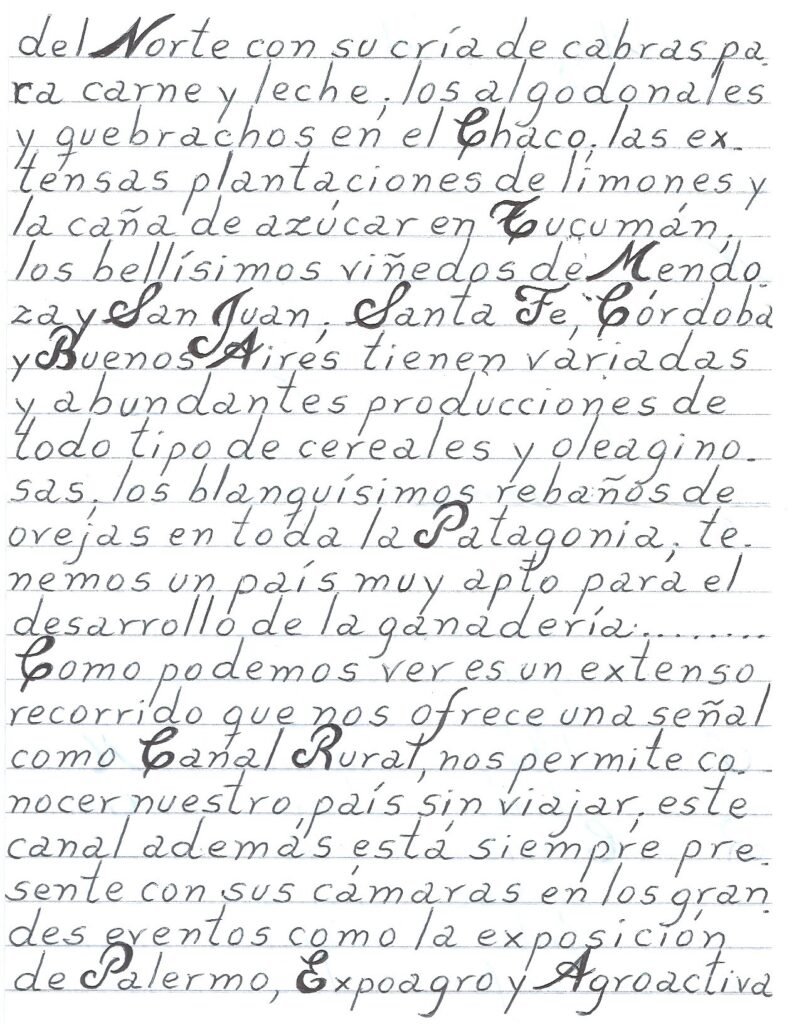 del Norte con su cría de cabras pa-
ra carne y leche; los algodonales
y quebrachos en el Chaco; las ex-
tensas plantaciones de limones y
la caña de azúcar en Tucumán;
los bellísimos viñedos de Mendo-
za y San Juan; Santa Fe, Córdoba
y Buenos Aires tienen variadas
y abundantes producciones de
todo tipo de cereales y oleagino-
sas; los blanquísimos rebaños de
ovejas en toda la Patagonia; te-
nemos un país muy apto para el
desarrollo de la ganadería.........
Como podemos ver es un extenso
recorrido que nos ofrece una señal
como Canal Rural, nos permite co-
nocer nuestro país sin viajar; este
canal además está siempre pre-
sente con sus cámaras en los gran-
des eventos como la exposición
de Palermo, Expoagro y Agroactiva